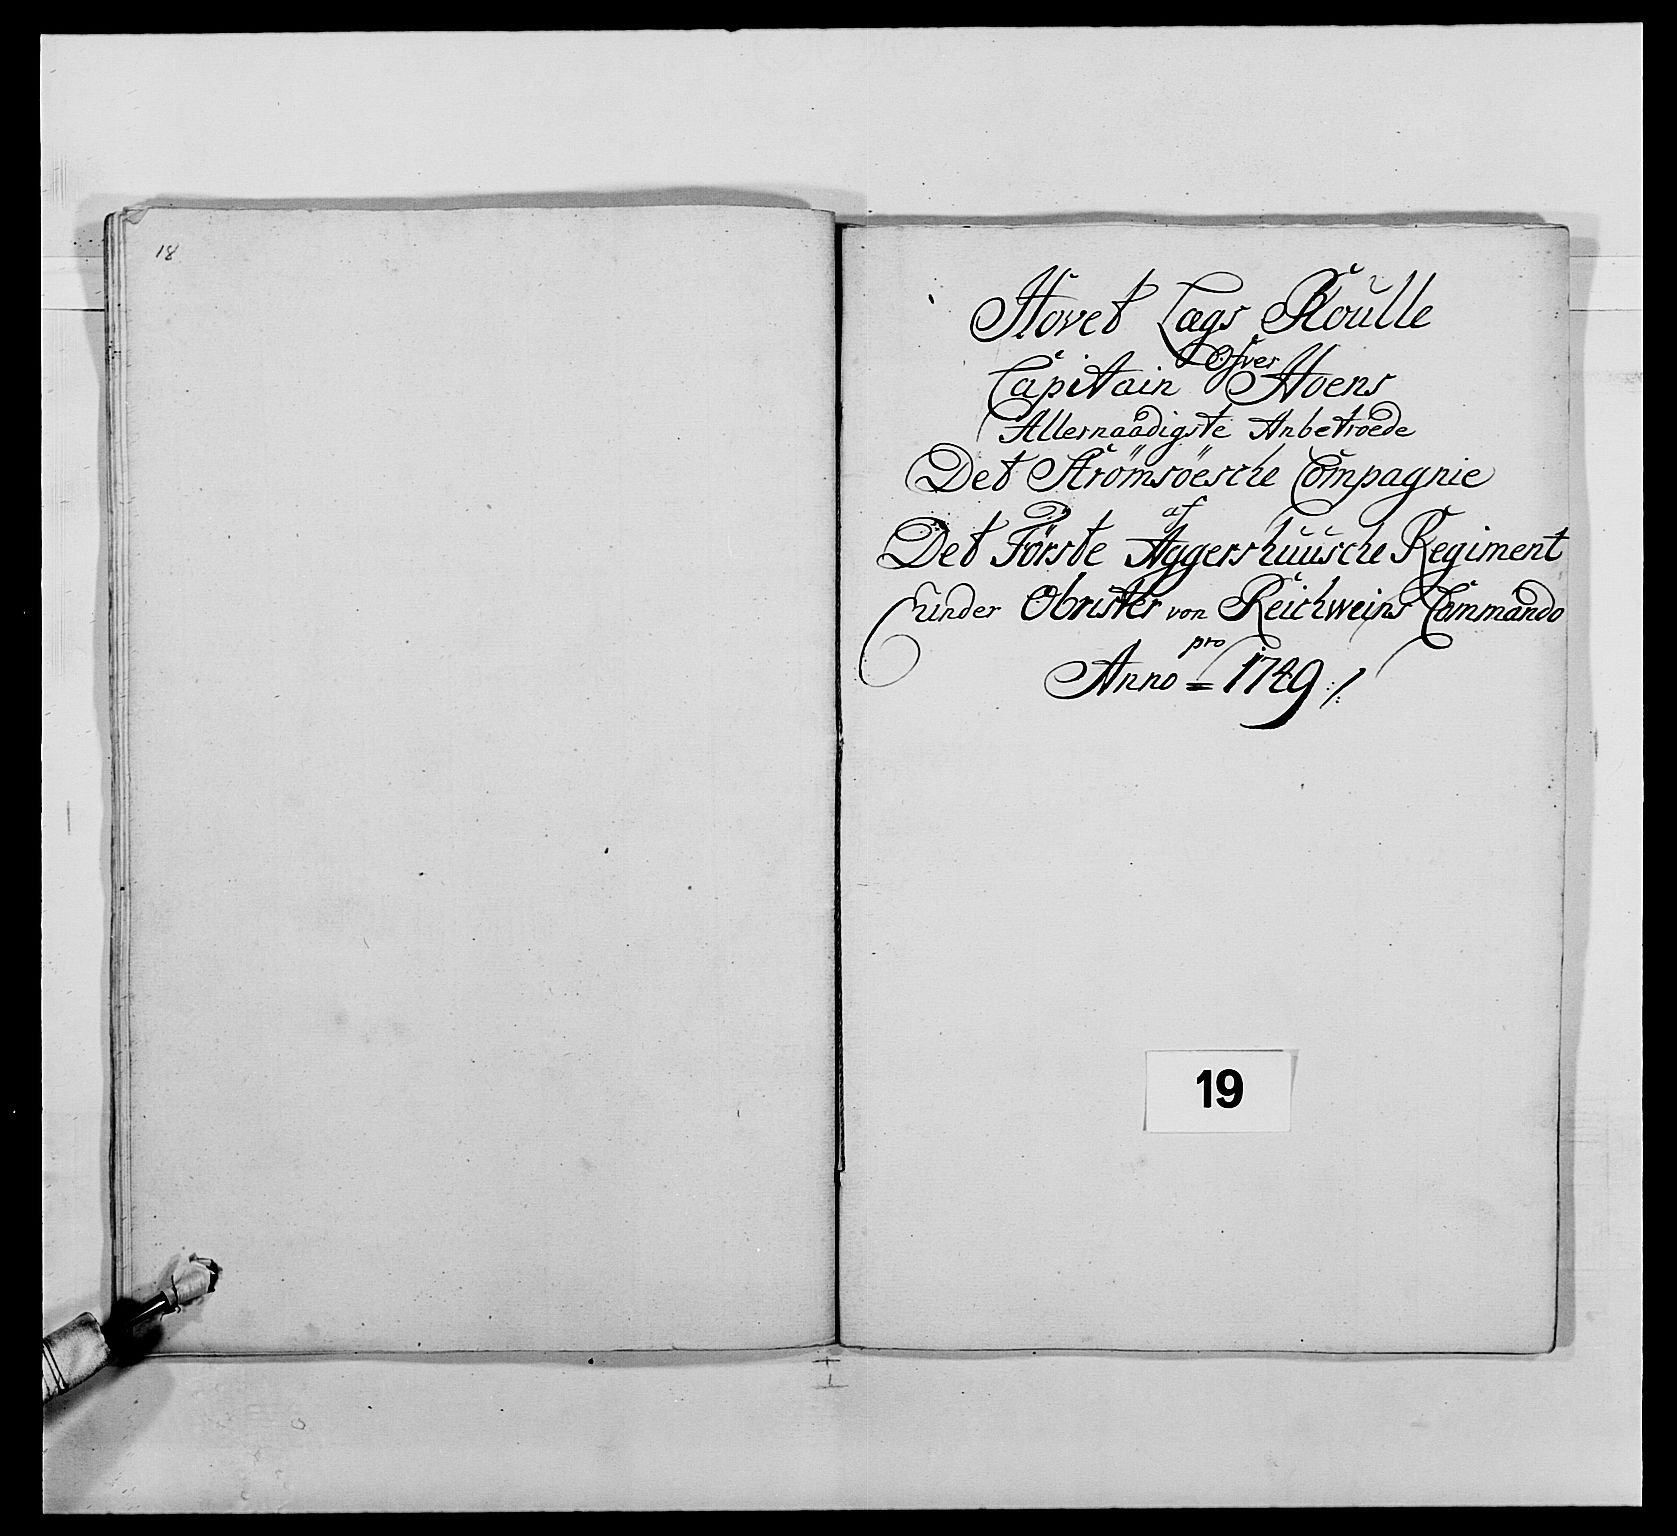 18
Hovet Lægs Roulle
Ofver
Capitain Hoens
Allernaadigste Anbetroede
Det Strömsöesche Compagnie
af
Det Förste Aggershuusche Regiment
under Obrister von Reichweins Commando
pro
Anno = 1749 ./.
19